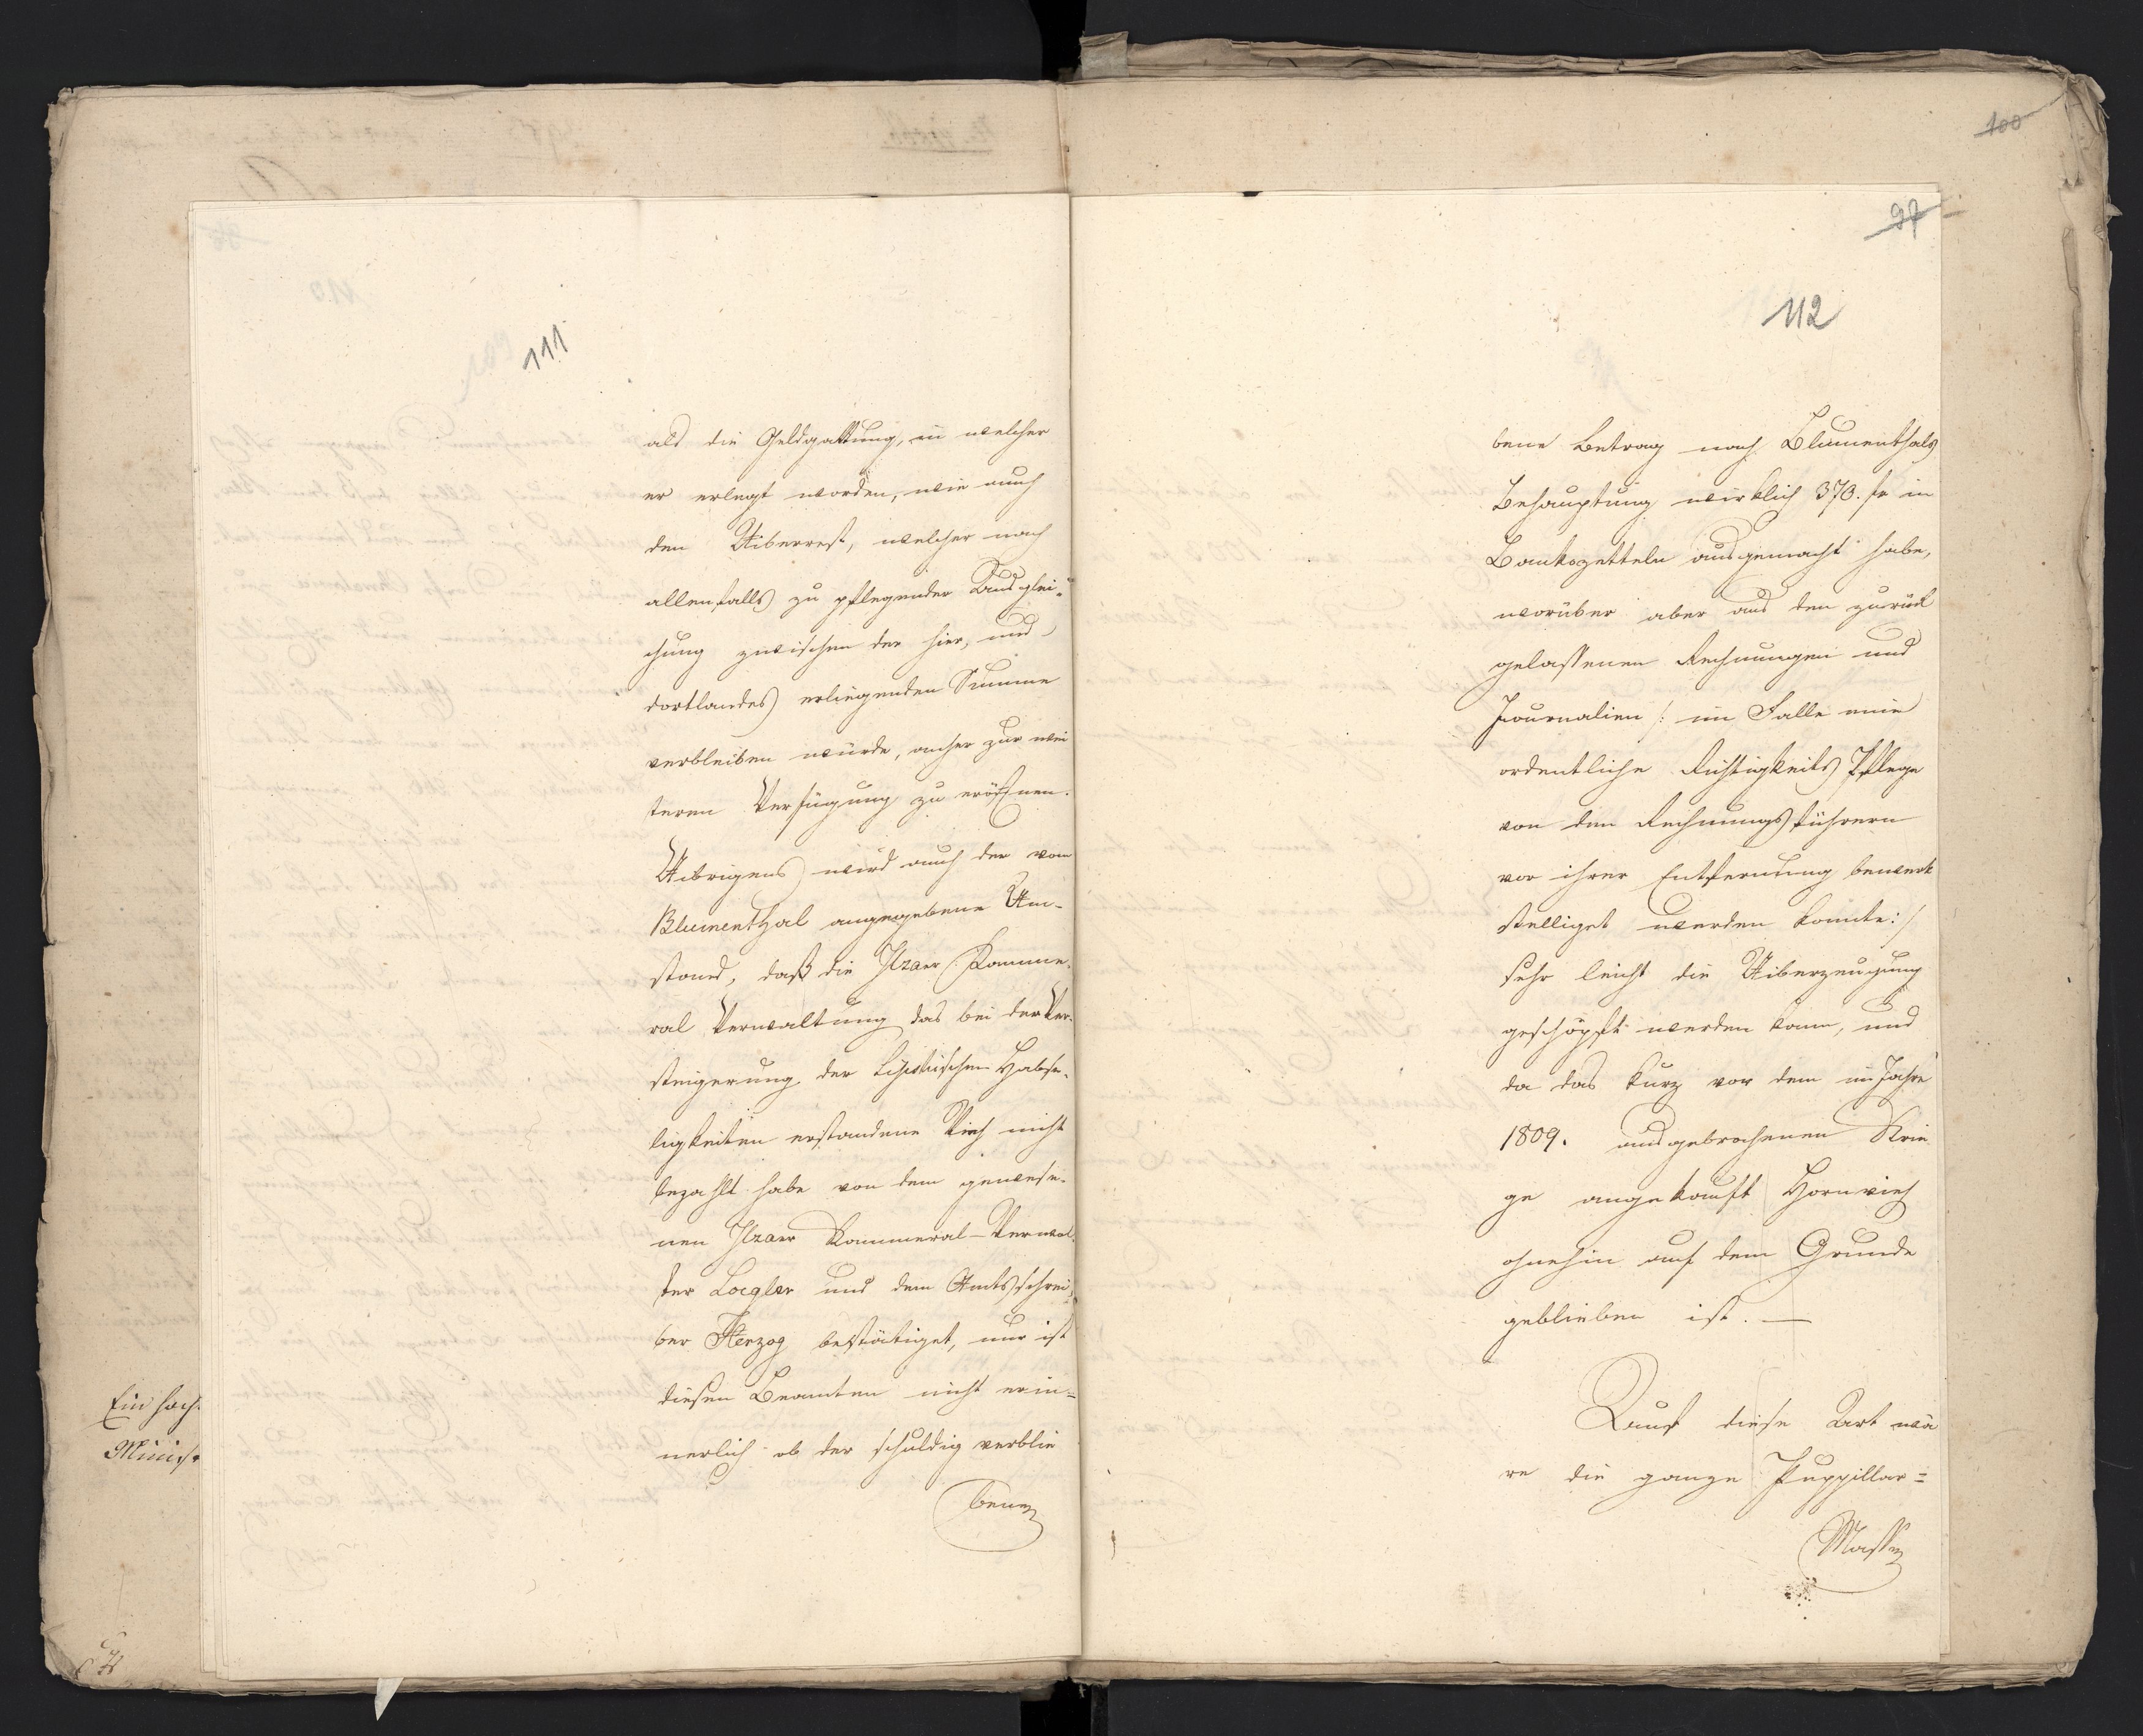 111
als die Geldgattung, in welcher
er erlegt worden, wie auch
den Uiberrest, welcher nach
allenfalls zu pflegender Ausglei-
chung zwischen der hier, und
dortlandes erliegenden Summe
verbleiben würde, anher zur wei
teren Verfügung zu eröffnen.
Uibrigens wird auch der vom
Blumenthal angegebene Um-
stand, daß die Ilzaer Kamme-
ral Verwaltung das bei der Ver-
steigerung der Habse-
ligkeiten erstandene Vieh nicht
bezahlt habe von dem gewese-
nen Ilzaer Kammeral-Verwal-
ter Loegler und dem Amtsschrei-
ber Herzog bestätiget, nur ist
diesen Beamten nicht erin-
nerlich ob der schuldig verblie
bene
Ein hoch
Minist
100
97
112
bene Betrag nach Blumenthals
Behauptung wirklich 370. fr in
Bankozetteln ausgemacht habe,
worüber aber aus den zurück
gelassenen Rechnungen und
Journalien /: im Falle eine
ordentliche Richtigkeits Pflege
von den Rechnungsführern
vor ihrer Entfernung bewerk
stelliget werden konnte :/
sehr leicht die Uiberzeugung
geschöpft werden kann, und
da das kurz vor dem im Jahre
1809. ausgebrochenen Krie
ge angekauft Hornvieh
ohnehin auf dem Grunde
geblieben ist. —
Auf diese Art wä
re die ganze Puppillar=
Masse